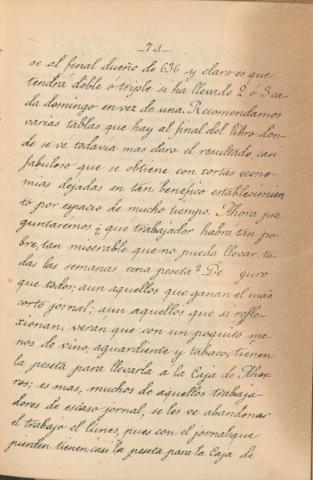 -74-
se al final dueño de 636 y claro es que
tendra doble ó triple si ha llevado 2 ó 3 ca-
da domingo en vez de una. Recomendamos
varias tablas que hay al final del libro don-
de se ve todavia mas claro el resultado casi
fabuloso que se obtiene con cortas econo-
mias dejadas en tan benéfico establecimien
to por espacio de mucho tiempo. Ahora pre
guntarémos ¿que trabajador habra tan po-
bre, tan miserable que no pueda llevar to-
das las semanas una peseta? De guro
que todos; aun aquellos que ganan el más
corto jornal; aun aquellos que si refle-
xionan, verán que con un poquito me-
nos de vino, aguardiente y tabaco, tienen
la peseta para llevarla á la Caja de Ahor-
ros; es mas, muchos de aquellos trabaja-
dores de escaso jornal, se les ve abandonar
el trabajo el lunes, pues con el jornal que
pierden tienen casi la peseta para la Caja de